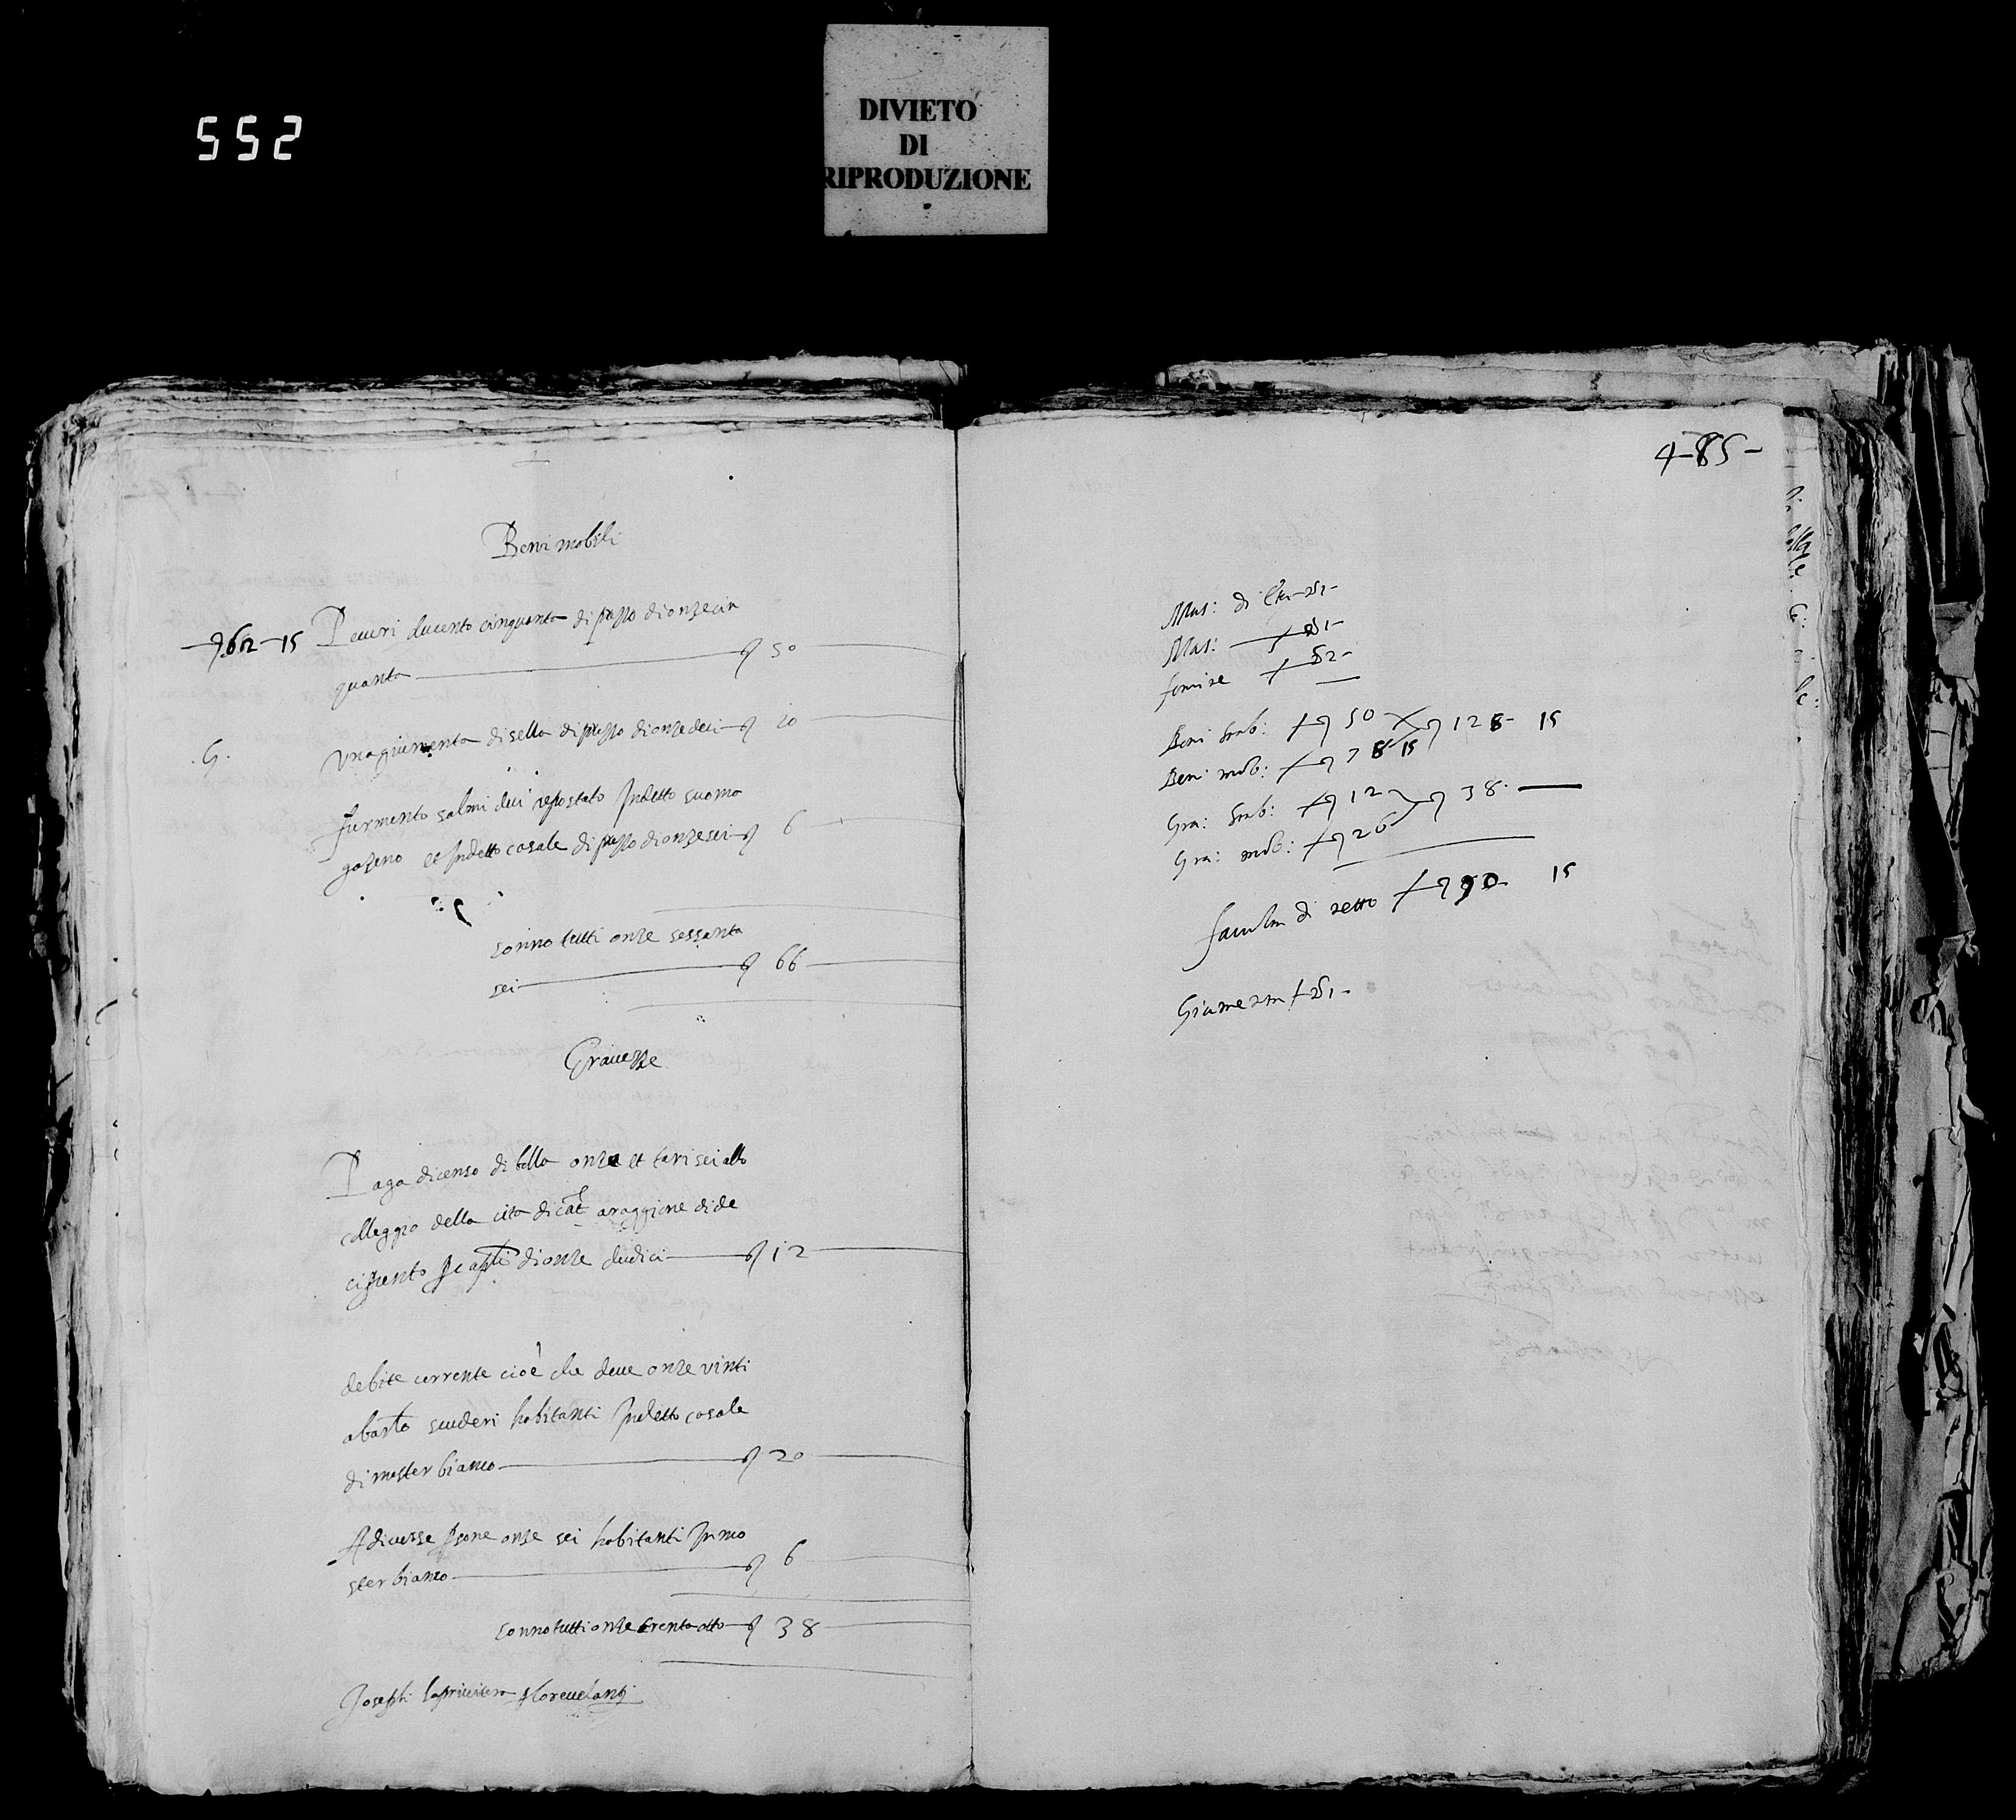 552
DIVIETO
DI
RIPRODUZIONE
Beni mobili
62-15 Pecuri ducento cinquanta di prezzo di onze cin
quanta 50
.G. una giumenta di sella di prezzo di onze deci 10
furmento salmi deci repostato in detto suo ma
gazeno et in detto casale di prezzo di onze sei 6
sonno tutti onze sessanta
sei 66
Gravezze
Paga di censo di bolla onza et tari sei allo
collegio della cita di cat.a a raggione di de
ci per cento per capli di onze dudici 12
debite corrente cioè che deve onze vinti
a basto scuderi habitanti in detto casale
di mosterbianco 20
A diverse persone onze sei habitanti in mo
sterbianco 6
sonno tutti onze trenta otto 38
Josephi
4-85-
Mas: di
Mas: 1-
femine 2-
Beni stab: 50 128- 15
Beni mob: 78 15
Gra: stab: 12 38-
Gra: mob: 26
facultà di netto 90 15
Giumenta 1-